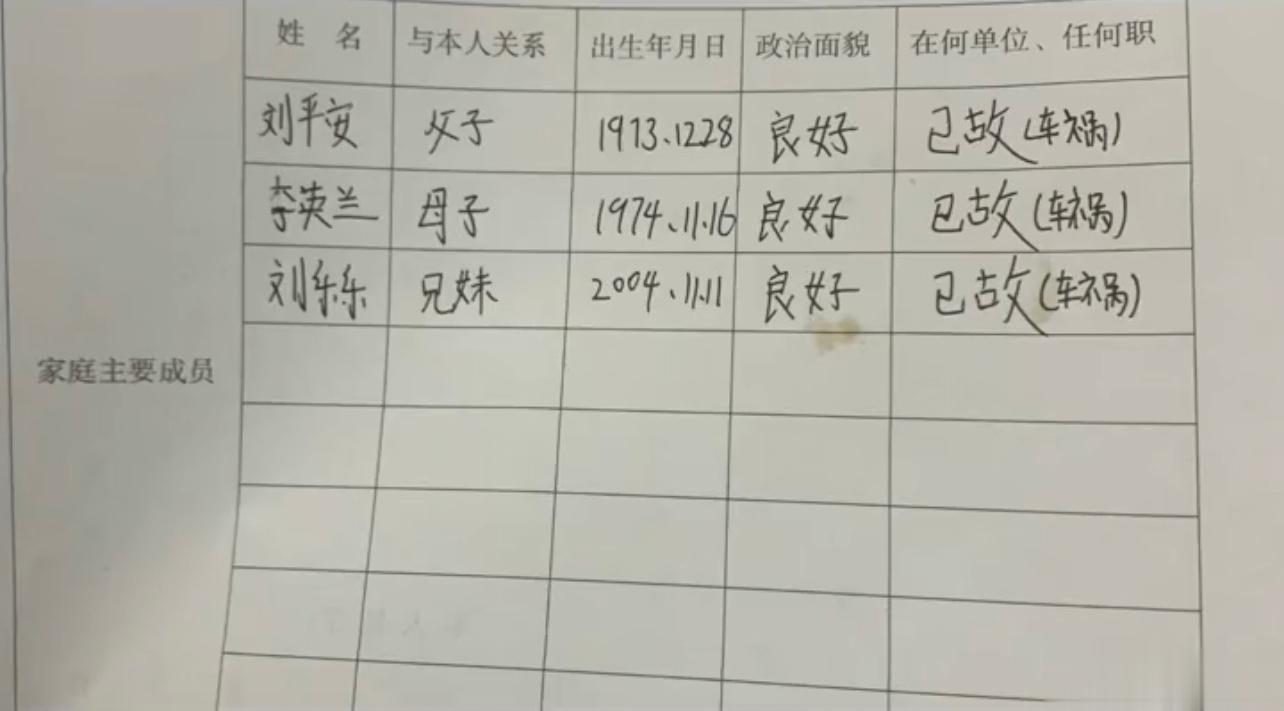 姓 名 与本人关系 出生年月日 政治面貌 在何单位、任何职
刘平安 父子 1973.1228 良好 已故(车祸)
李英兰 母子 1974.11.16 良好 已故(车祸)
刘乐乐 兄妹 2004.11.11 良好 已故(车祸)
家庭主要成员